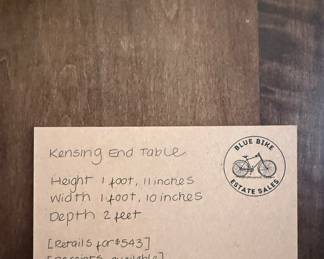 Kensing End Table
BLUE BIKE
ESTATE SALES
Height 1 foot, 11 inches
Width 1 foot, 10 inches
Depth 2 feet
[Retails for $543]
[Receipts available]